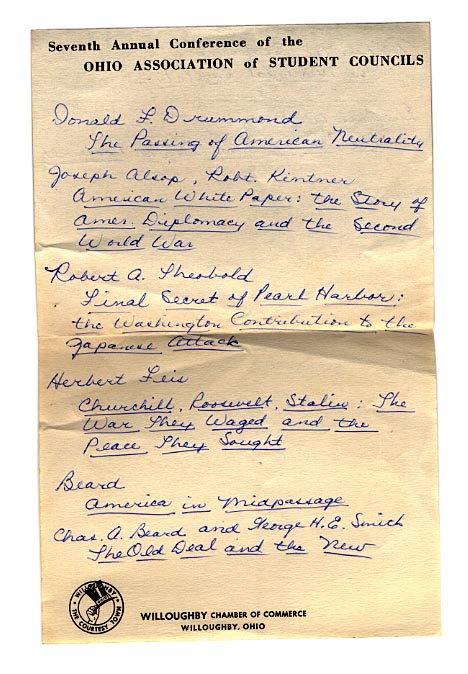 Seventh Annual Conference of the
OHIO ASSOCIATION of STUDENT COUNCILS
Donald F. Drummond
The Passing of American Neutrality
Joseph Alsop, Robt. Kintner
American White Paper: the Story of
Amer. Diplomacy and the Second
World War
Robert A. Theobold
Final Secret of Pearl Harbor:
the Washington Contribution to the
Japanese Attack
Herbert Feis
Churchill, Roosevelt, Stalin: The
War They Waged and the
Peace They Sought
Beard
America in Midpassage
Chas. A. Beard and George H. E. Smith
The Old Deal and the New
WILLOUGHBY
THE COURTESY TOWN
WILLOUGHBY CHAMBER OF COMMERCE
WILLOUGHBY, OHIO